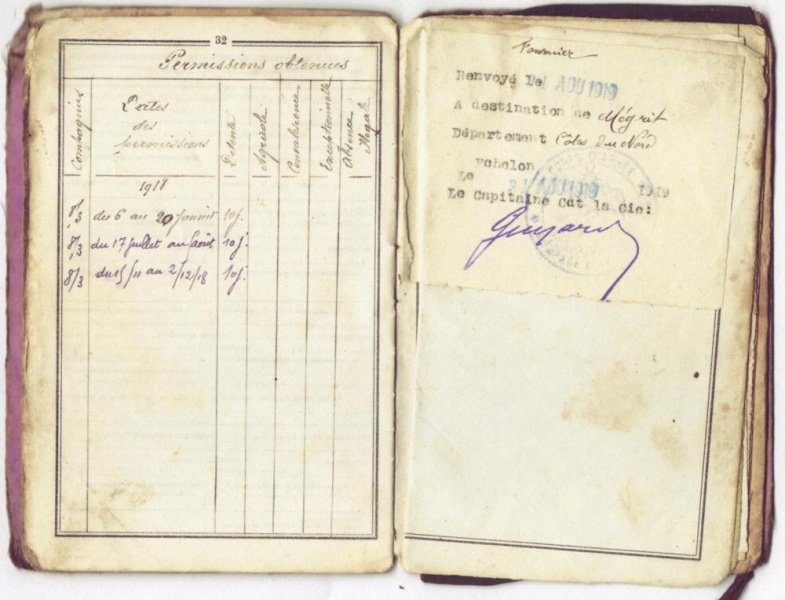 32
Permissions obtenues
Compagnies
Dates
des
permissions
Détente
Agricole
Convalescence
Exceptionnelle
Absence
illégale
1918
8/3 du 6 au 20 Janvier 10 j.
8/3 du 17 Juillet au Août 10 j.
8/3 du 15/11 au 2/12/18 10 j.
Renvoyé le AOU 1919
A destination de Mégrit
Département Côtes du Nord
échelon
Le 1919
Le Capitaine Cdt la Cie: